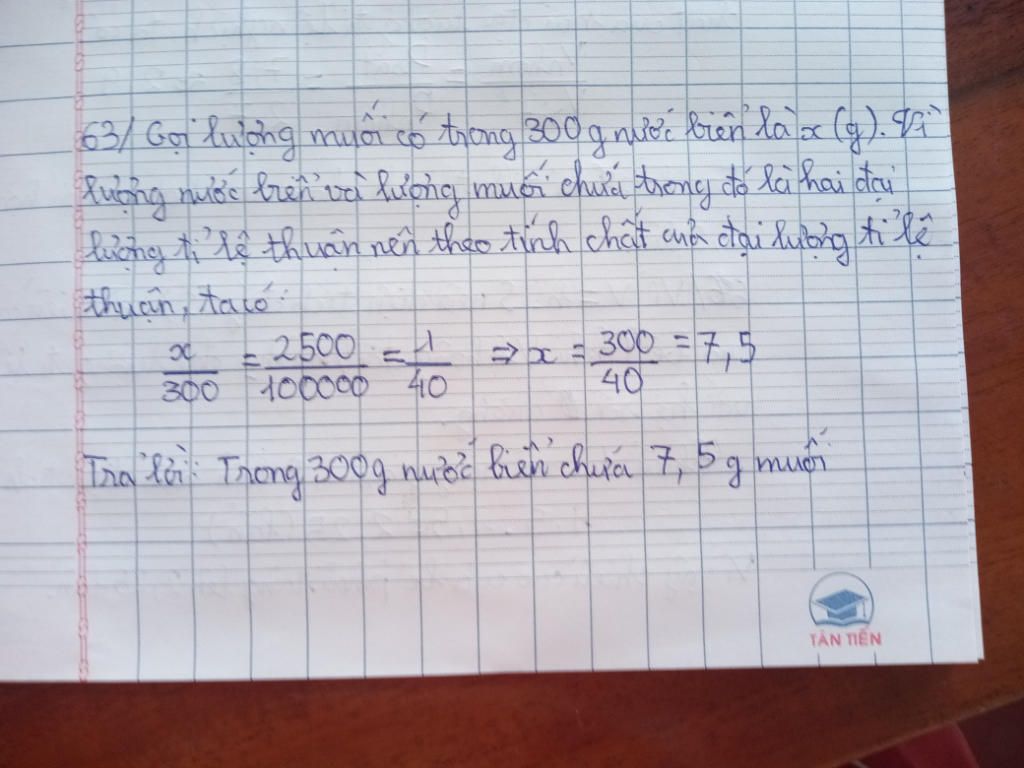 63/ Gọi lượng muối có trong 300g nước biển là x (g). Vì
lượng nước biển và lượng muối chứa trong đó là hai đại
lượng tỉ lệ thuận nên theo tính chất của đại lượng tỉ lệ
thuận, ta có:
x/300 = 2500/100000 = 1/40 ⇒ x = 300/40 = 7,5
Trả lời: Trong 300g nước biển chứa 7,5g muối
TÂN TIẾN